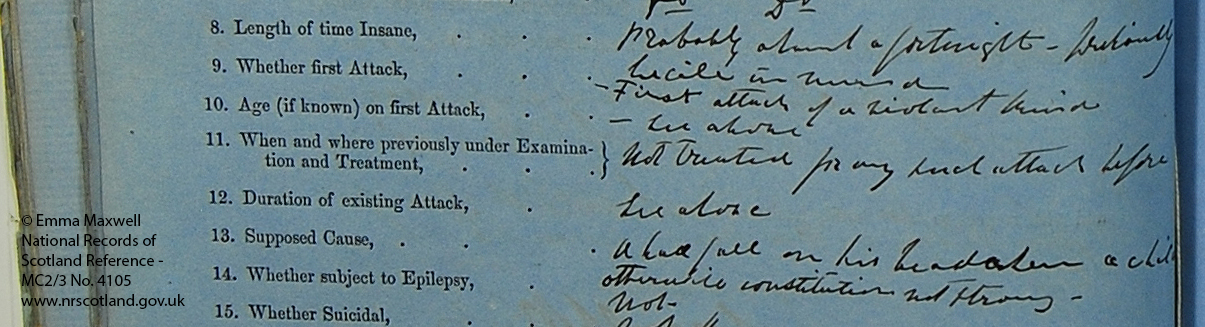 8. Length of time Insane, . . . Probably about a fortnight - previously
9. Whether first Attack, . . . in mind
10. Age (if known) on first Attack, . . - First attack of a violent kind
- See above
11. When and where previously under Examina-
tion and Treatment, . . . } Not treated for any such attack before
12. Duration of existing Attack, . See above
13. Supposed Cause, . . . A bad fall on his head when a child
14. Whether subject to Epilepsy, . otherwise constitution not strong -
15. Whether Suicidal, . . Not
© Emma Maxwell
National Records of
Scotland Reference -
MC2/3 No. 4105
www.nrscotland.gov.uk